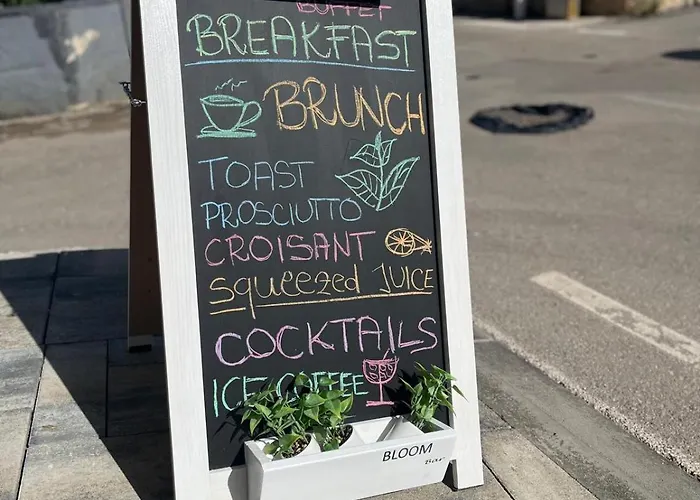 BUFFET
BREAKFAST
BRUNCH
TOAST
PROSCIUTTO
CROISANT
squeezed JUICE
COCKTAILS
ICE COFFEE
BLOOM
Bar